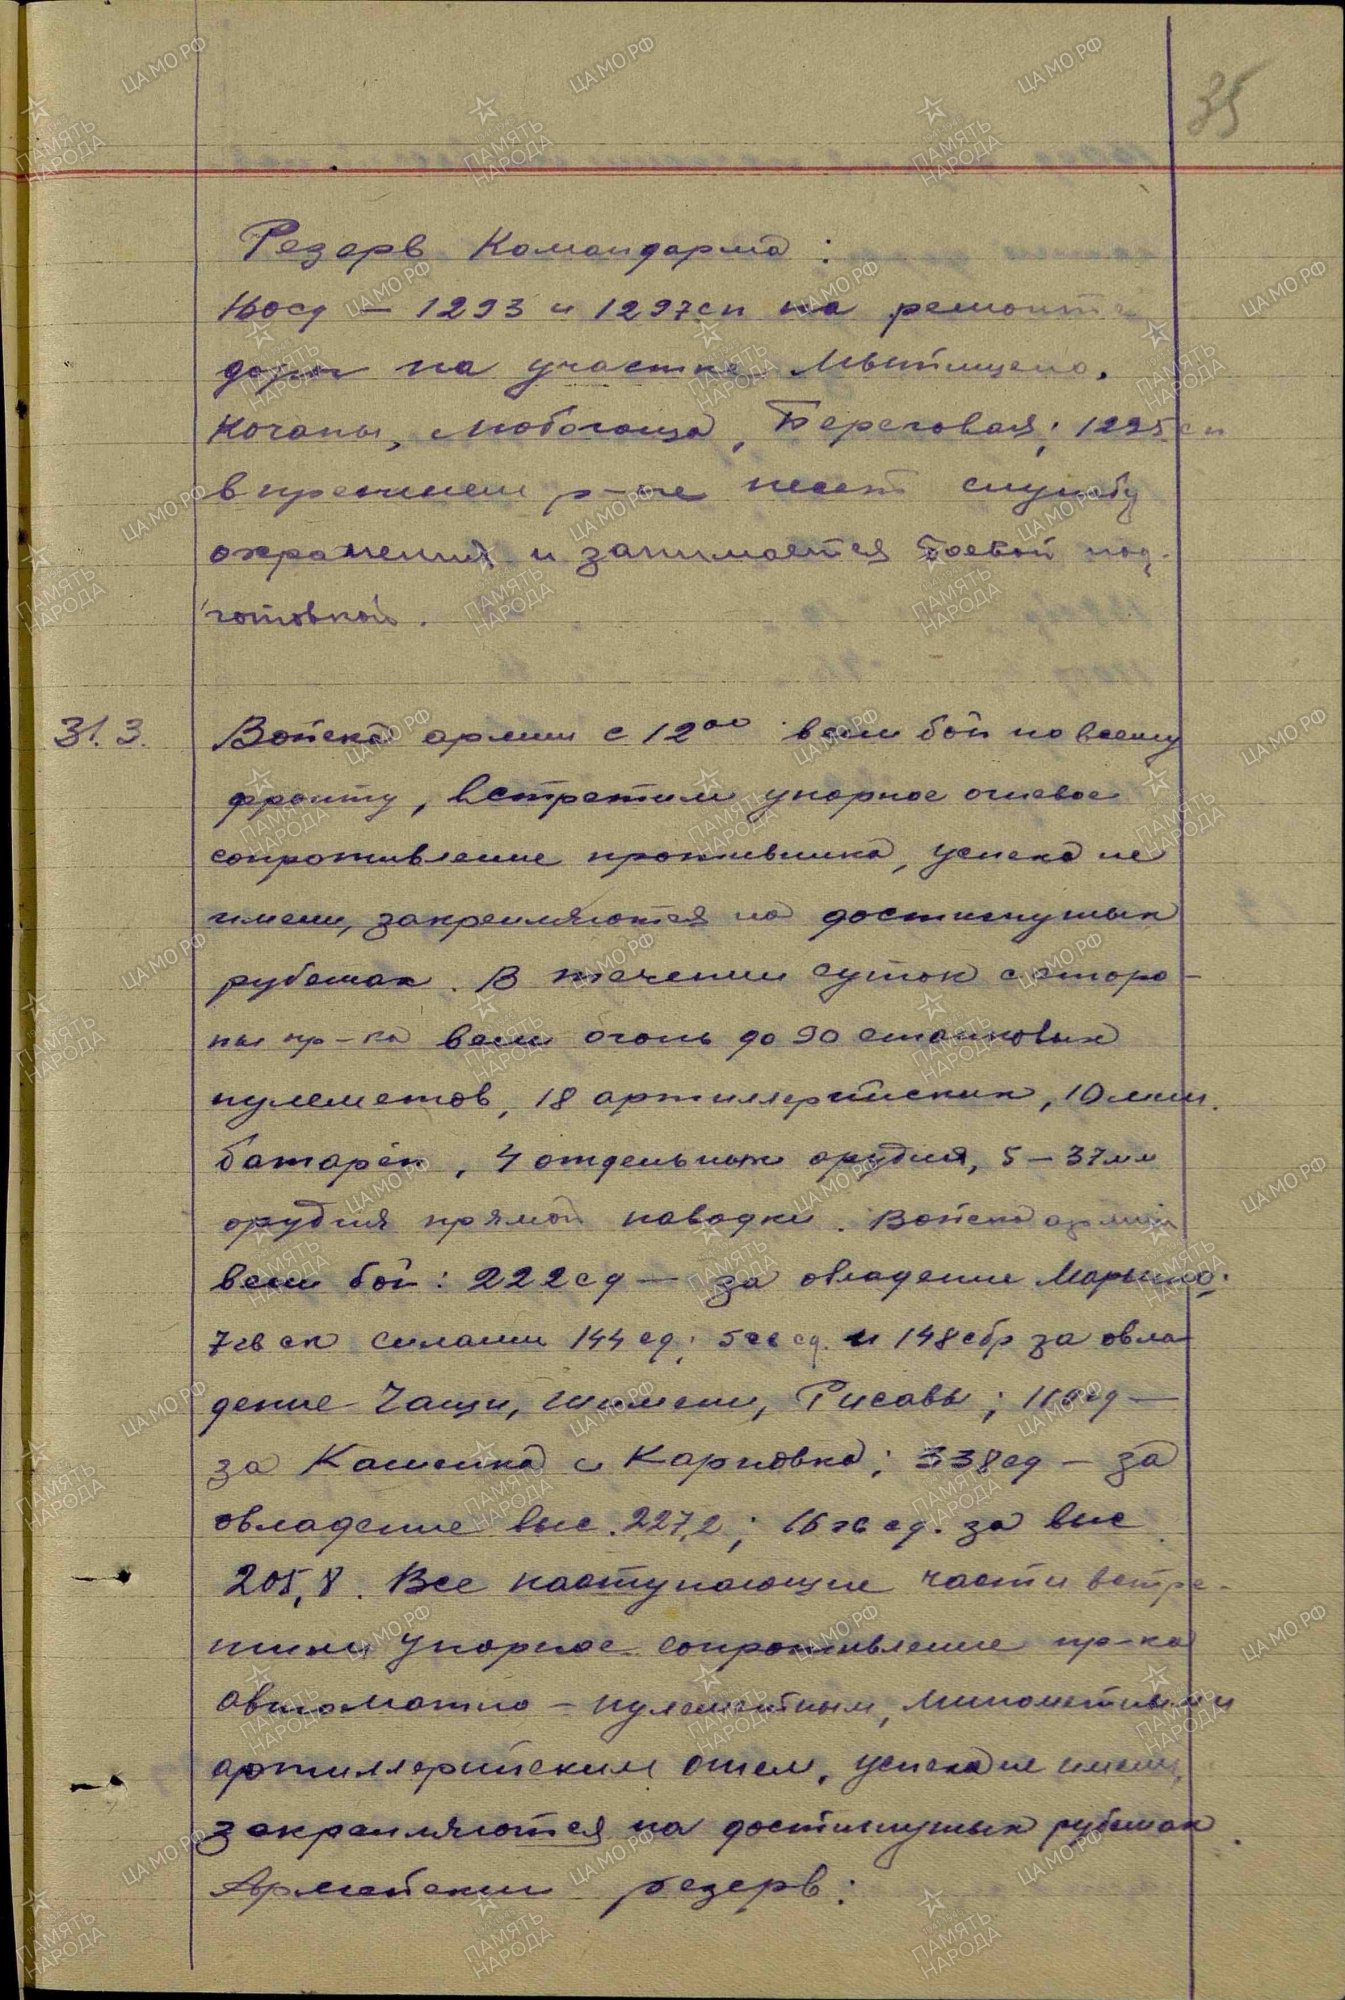 35
Резерв Командарма:
160сд – 1293 и 1297сп на ремонте
дорог на участке Мытищено,
Кочаны, Любогоща, Береговая; 1295сп
в прежнем р-не несет службу
охранения и занимается боевой под-
готовкой.
31.3. Войска армии с 12⁰⁰ вели бой по всему
фронту, встретили упорное огневое
сопротивление противника, успеха не
имели, закрепляются на достигнутых
рубежах. В течении суток с сторо-
ны пр-ка вели огонь до 90 станковых
пулеметов, 18 артиллерийских, 10 мин.
батарей, 4 отдельных орудия, 5 – 37мм
орудия прямой наводки. Войска армии
вели бой: 222сд – за овладение Марьино;
7гв ск силами 144сд; 5гв сд. и 148сбр за овла
дение Чащи, Шимени, Рисавы; 110сд –
за Каменка и Карповка; 338сд – за
овладение выс. 227,2; 16гв сд. за выс
205,8. Все наступающие части встре-
тили упорное сопротивление пр-ка
автоматно – пулеметным, минометным и
артиллерийским огнем, успеха не имели,
закрепляются на достигнутых рубежах.
Армейский резерв:
ПАМЯТЬ НАРОДА
ЦАМО.РФ